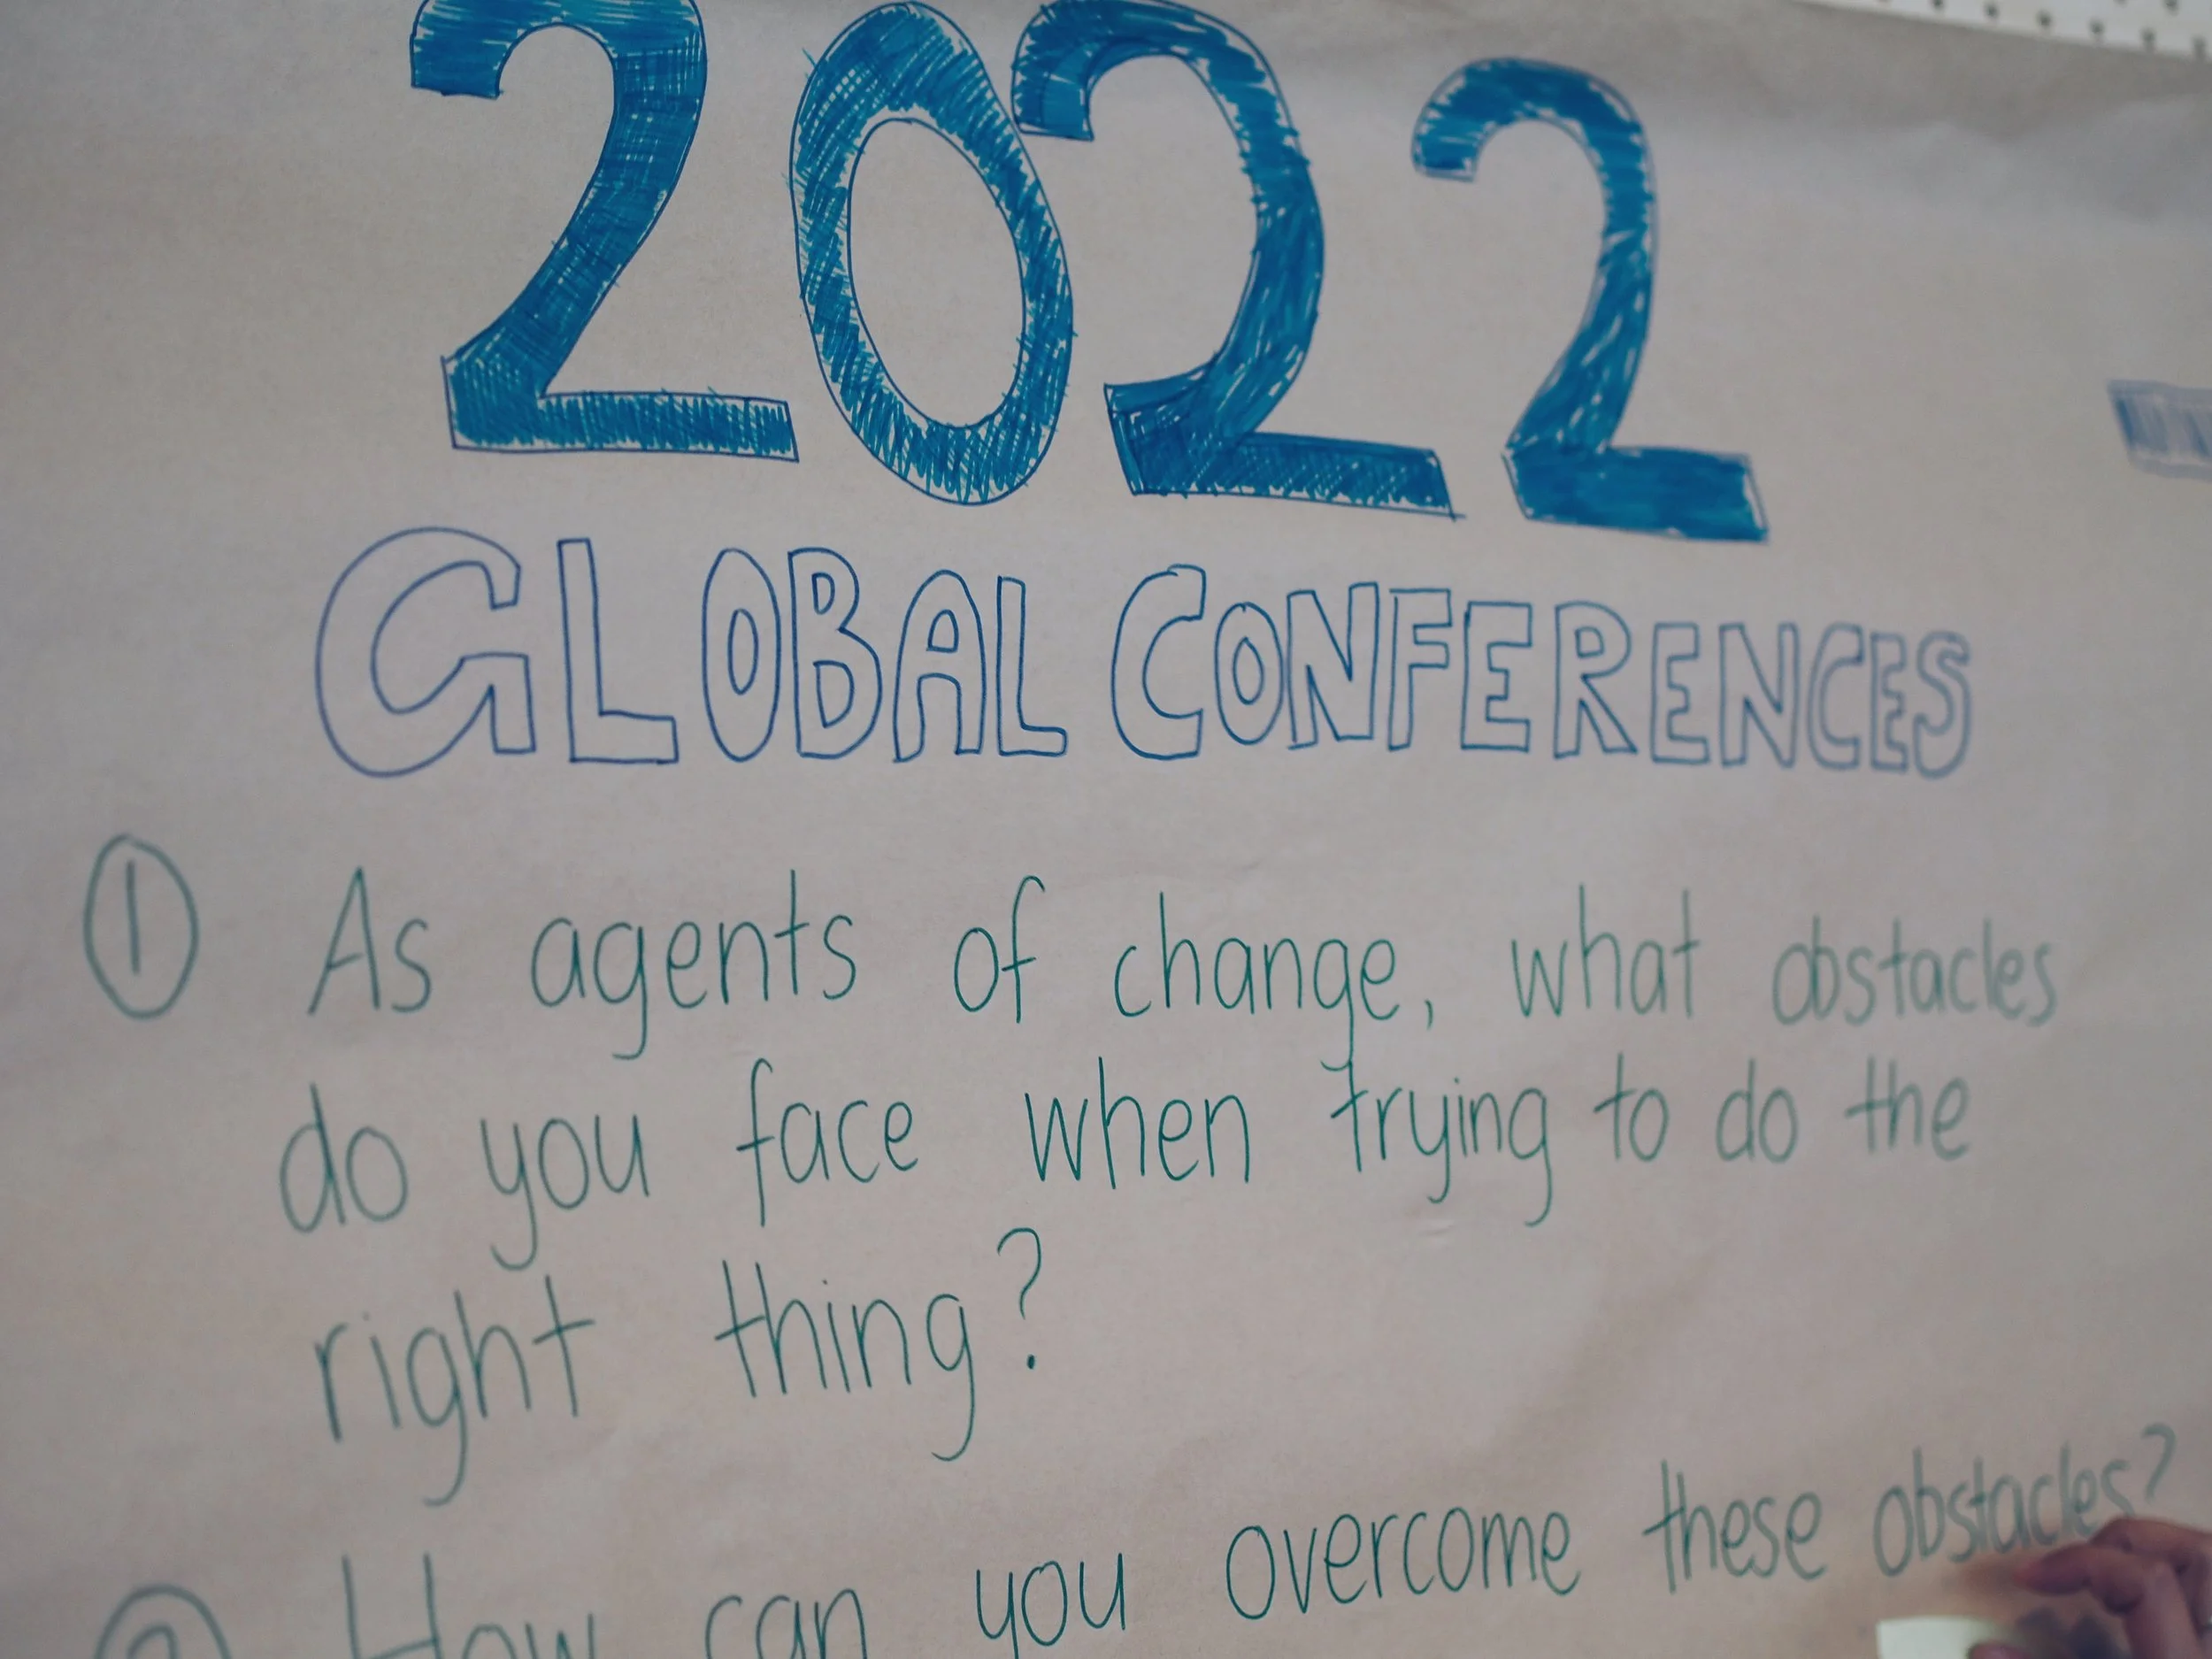 2022
GLOBAL CONFERENCES
① As agents of change, what obstacles
do you face when trying to do the
right thing?
② How can you overcome these obstacles?